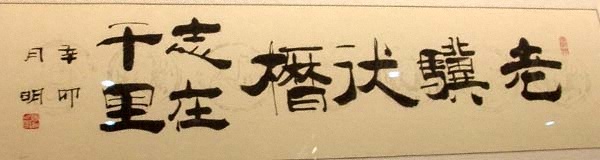 老驥伏櫪
志在
千里
辛卯
月明